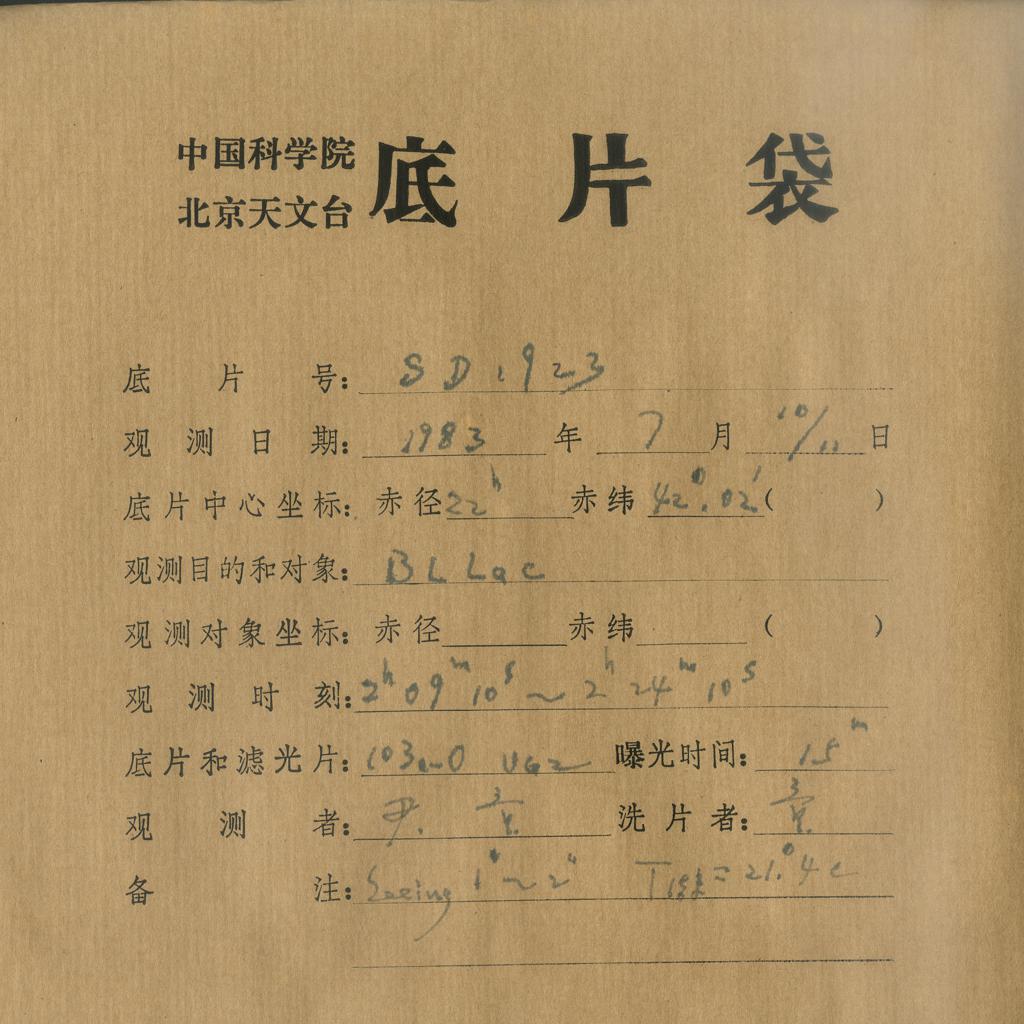 中国科学院
北京天文台
底片袋
底片号: SD1923
观测日期: 1983年7月10/11日
底片中心坐标: 赤径22h赤纬42°.02'( )
观测目的和对象: BL Lac
观测对象坐标: 赤径 赤纬 ( )
观测时刻: 2h09m10s~2h24m10s
底片和滤光片: 103a-O UG2 曝光时间: 15m
观测者: 尹. 洗片者:
备注: Seeing 1"~2" T = 21.°4c